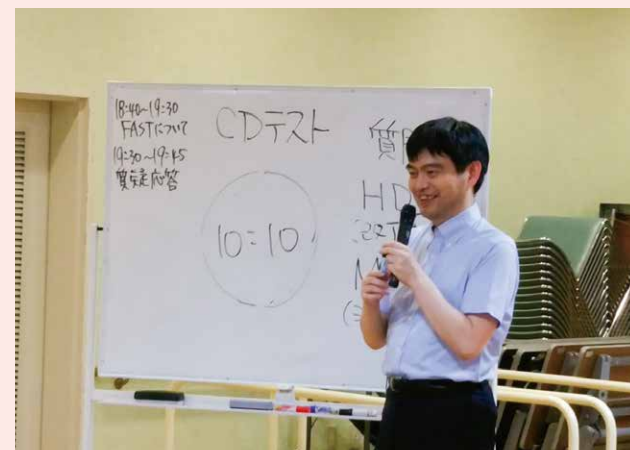 18:40~19:30
FASTについて
19:30~19:45
質疑応答
CDテスト
10:10
質
HD
M